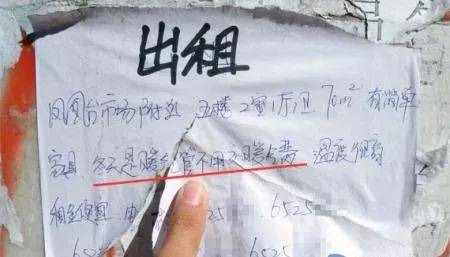 出租
凤凰台市场附近 五楼 2室1厅1卫 70m² 有简单
家具. 冬天是暖气管不用交暖气费 温度很
租金便宜. 电 25 . 6525
6525